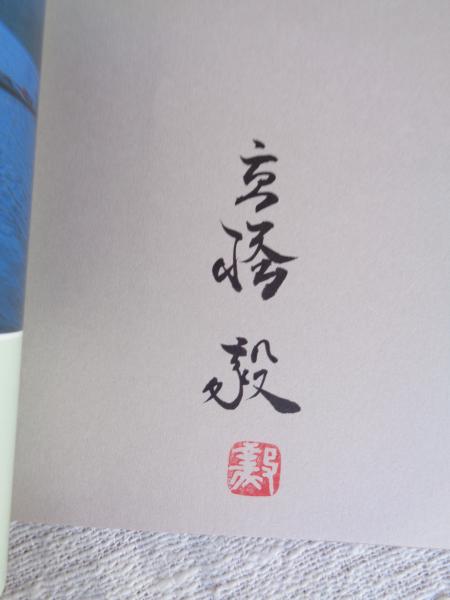 高橋
毅
毅